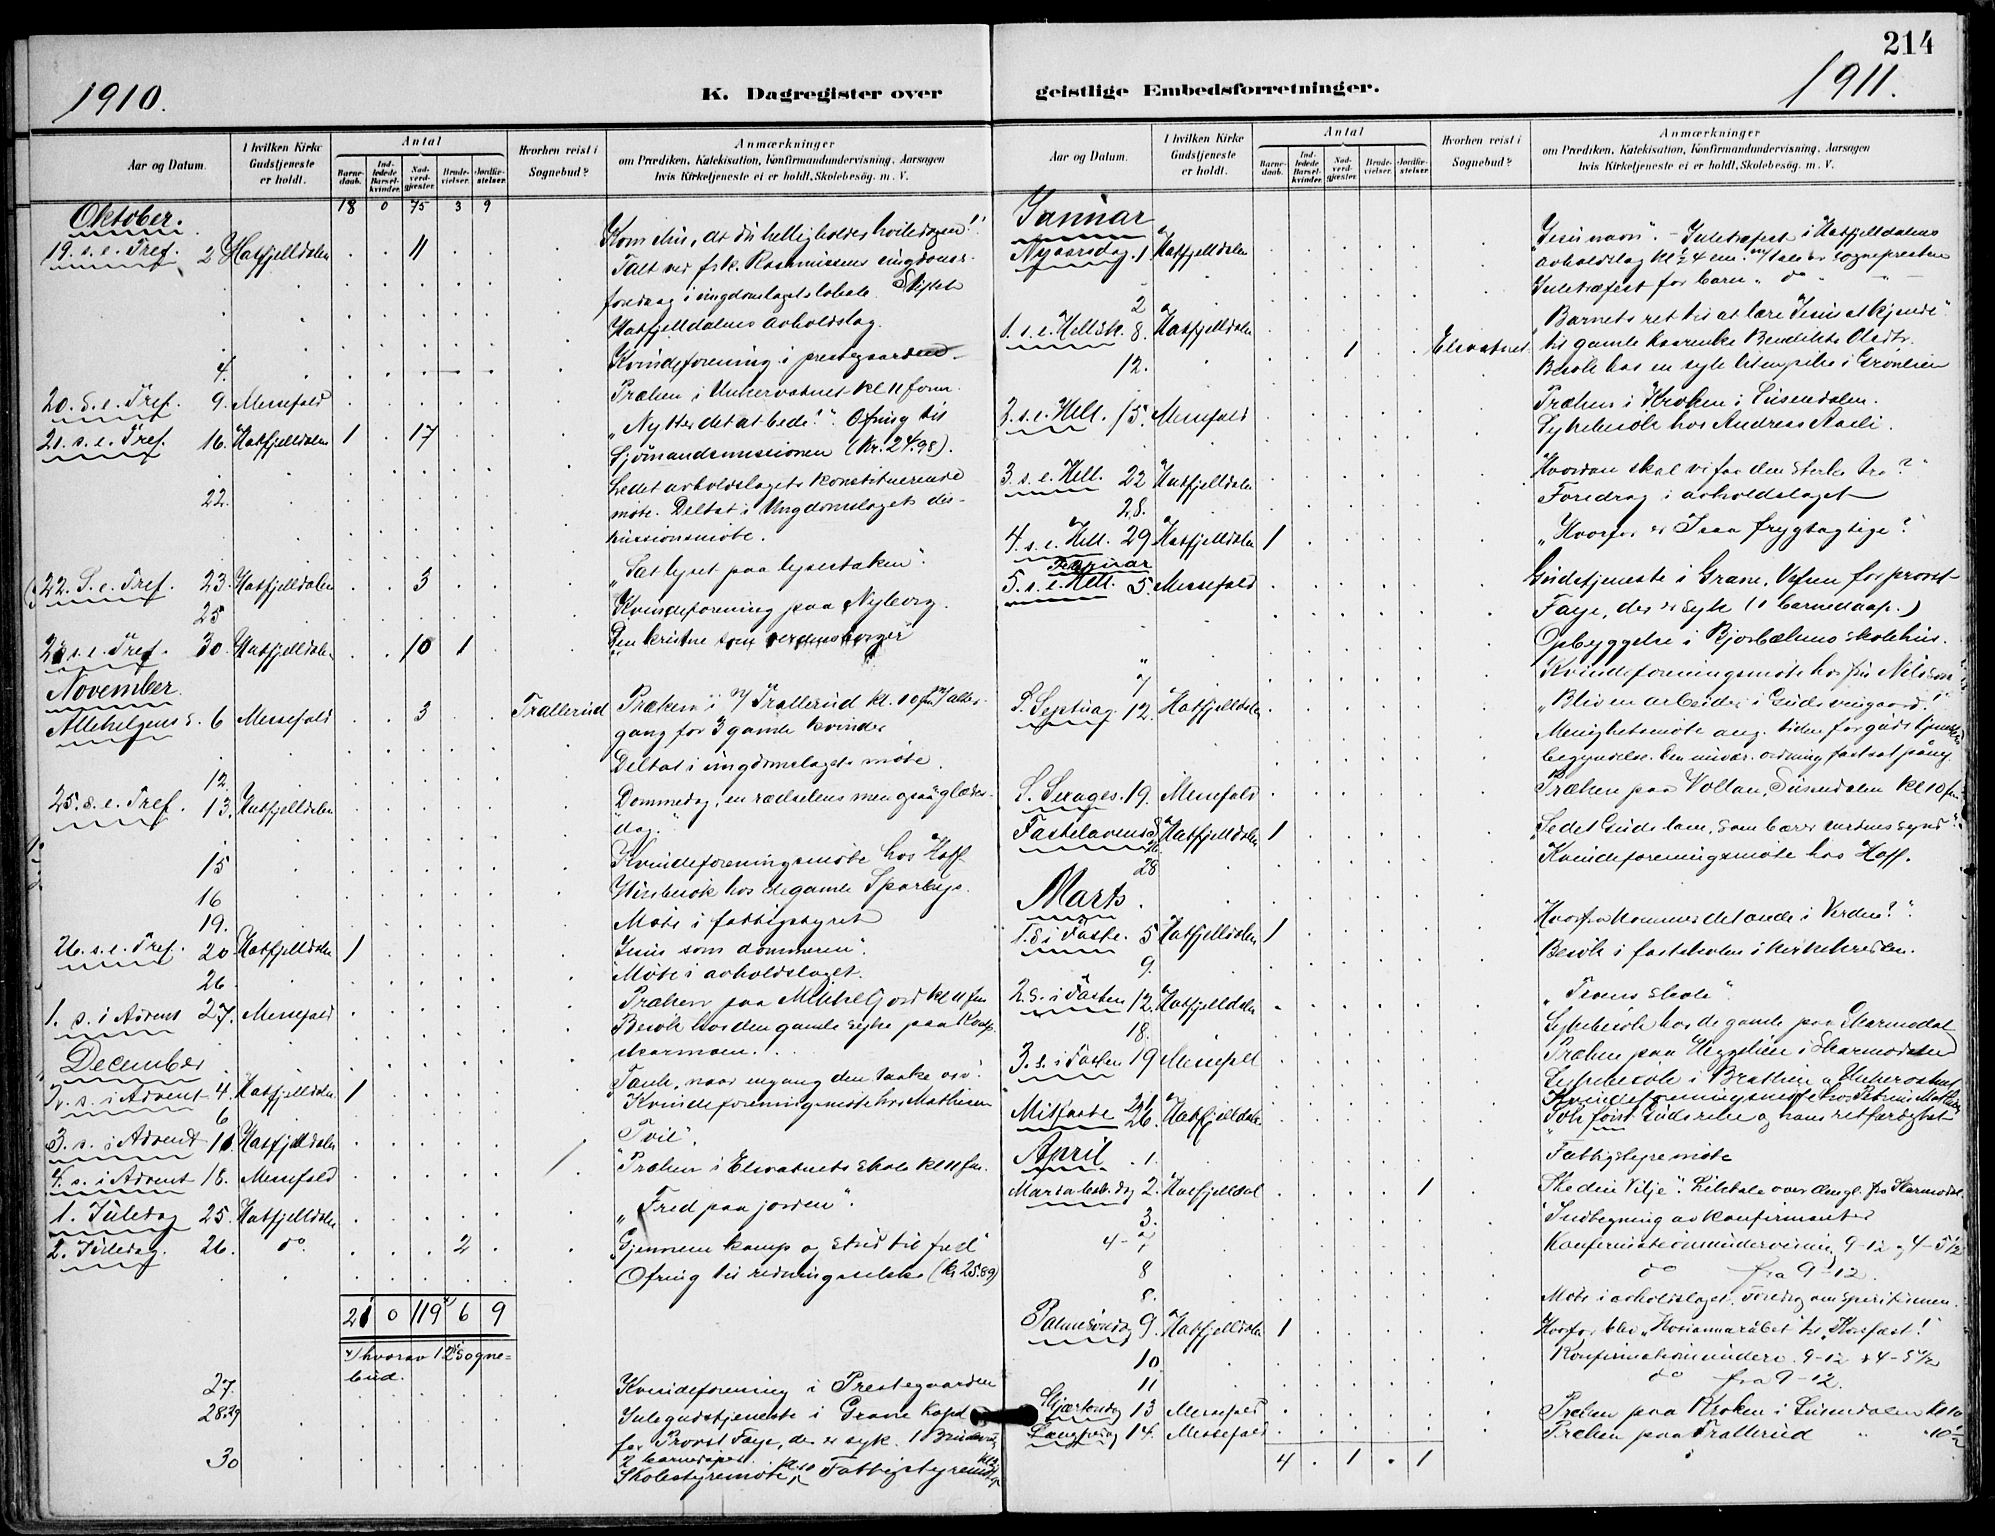 214
1910.
K. Dagregister over
geistlige Embedsforretninger.
1911.
Aar og Datum.
I hvilken Kirke Gudstjeneste er holdt.
Antal
Barnedaab.
Indledede Barselkvinder.
Nadverdgjæster.
Brudevielser.
Jordfæstelser.
Hvorhen reist i Sognebud?
Anmærkninger
om Prædiken, Katekisation, Konfirmandundervisning, Aarsagen
hvis Kirketjeneste ei er holdt, Skolebesøg. m. V.
18 0 75 3 9
Oktober.
19. s. e. Tref. 2 Hatfjelldalen 11 Kom ihu, at du helligholder hviledagen!
Talt ved frk. Rasmussens ungdoms-
foredrag i ungdomslagets lokale. Stiftet
Hatfjelldalens avholdslag.
4. Kvindeforening i prestegaarden.
20. S. e. Tref. 9. Messefald Præken i Unkervatnet kl 11 form.
21. s. e. Tref. 16. Hatfjelldalen 1 17 "Nytter det at bede?" Ofring til
Sjömandsmissionen (kr. 24.98).
22. Ledet avholdslagets konstituerende
møte. Deltat i Ungdomslagets dis-
kussionsmøte.
22. S. e. Tref. 23. Hatfjelldalen 3 "Sæt lyset paa lysestaken".
25 Kvindeforening paa Nyborg.
23 s. e. Tref. 30. Hatfjelldalen 10 1 "Den kristne som verdensborger"
November.
Allehelgens s. 6 Messefald 3 Trallerud Præken i Trallerud kl. 10 fm. alter-
gang for 3 gamle kvinder
12. Deltat i ungdomslagets møte.
25. s. e. Tref. 13. Hatfjelldalen Dommedag, en rædselens men også glædes-
dag."
15 Kvindeforeningsmøte hos Hoff
16 besøk hos de gamle Sparbys.
19. Møte i fattigstyret
26. s. e. Tref. 20. Hatfjelldalen 1 "Jesus som dommeren".
26. Møte i avholdslaget.
1. s. i Advent 27. Messefald Præken paa Mikkeljord kl 11 fm
Besøk hos den gamle syke paa
skarmoen.
December
2. s. i Advent 4. Hatfjelldalen 1 Tænk, naar engang den taake osv".
6 Kvindeforeningsmøte hos Mathisen
3. s. i Advent 11. Hatfjelldalen "Tvil".
4. s. i Advent 18. Messefald Præken i Elsvatnets skole kl 11 fm.
1. Juledag 25. Hatfjelldalen "Fred paa jorden".
2. Juledag. 26. do. 2 "Gjennem kamp og strid til fred"
Ofring til redningsselsk. (kr 25.89)
21 0 119 6 9
hvorav 12 sogne-
bud.
27. Kvindeforening i Prestegaarden
28. 29 Julegudstjeneste i Grane Kapel
for Provst Faye, der er syk. 1 Brudevi
2 barnedaap.
30 Skolestyremøte kl 10 Fattigstyremøte
Aar og Datum.
I hvilken Kirke Gudstjeneste er holdt.
Antal
Barnedaab.
Indledede Barselkvinder.
Nadverdgjæster.
Brudevielser.
Jordfæstelser.
Hvorhen reist i Sognebud?
Anmærkninger
om Prædiken, Katekisation, Konfirmandundervisning, Aarsagen
hvis Kirketjeneste ei er holdt, Skolebesög. m. V.
Januar
Nyaarsdag. 1. Hatfjelldalen Jesu navn". - Juletræfest i Hatfjelldalens
avholdslag kl 4 em. tale av sognepresten
2 Juletræfest for barn " do
1. s. e. Hell3k. 8. Hatfjelldalen "Barnets ret til at lære Jesus at kjende"
1 Elsvatnet til gamle Benedikte Olsdtr.
12. Besøk hos en syk i Grönlien
2. s. e. Hell. 15. Messefald Præken i Kroken i Susendalen.
Sykebesøk hos Andreas Aasli.
3. s. e. Hell. 22 Hatfjelldalen Hvordan skal vi faa den sterke tro?"
28. Foredrag i avholdslaget
4. s. e. Hell. 29 Hatfjelldalen 1 "Hvorfor er I saa frygtagtige?"
Februar
5. s. e. Hell. 5 Messefald Gudstjeneste i Grane, Vefsen for provst
Faye, der er syk (1 barnedaap.)
Opbyggelse i skolehus.
7 Kvindeforeningsmøte hos fru Nilsson
S. Septuag. 12. Hatfjelldalen "Bliv en arbeider i Guds vingaard!"
Menighetsmøte ang. tiden for gudstjenestens
begyndelse. Den nuvær. ordning fastsat påny
S. Sexages. 19. Messefald Præken paa Vollan, Susendalen kl 10 fm.
Fastelavens s 26 Hatfjelldalen 1 "Se det Guds lam, som bærer verdens synd".
28 Kvindeforeningsmøte hos Hoff.
Marts.
1. S i Faste. 5 Hatfjelldalen 1 Hvorfra kommer det onde i Verden?".
9. Besøk i fastskolen i kirkekredsen.
2. S. i Fasten 12. Hatfjelldalen "Troens skole".
18. Sykebesøk hos de gamle paa Skarmodal
3. s. i Fasten 19 Messefald Præken paa Heggelien i Skarmodalen
Sykebesøk i Brætlien og Unkervatnet
21 Kvindeforeningsmøte hos
Mitfaste 26. Hatfjelldalen "Søk først Guds rike og hans retfærdighet
April . 1. Fattigstyremøte
Maria beb. dag 2. Hatfjelldal 1 "Ske din Vilje". Liktale over fra Skarmodal.
3. Indtegning av konfirmanter
4-7 Konfirmationsundervisning 9-12 og 4-5 1/2
8 do fra 9-12.
8. Møte i avholdslaget. Foredrag om spiritismen.
Palmesöndag 9. Hatfjelldalen 1 Hvorfor blev "Hosiannaråbet" til "Korsfæst!"
10. Konfirmationsunderv. 9-12 & 4-5 1/2
11 do fra 9-12.
Skjærtorsdag 13 Messefald Præken paa Kroken i Susendalen kl 10
Langfredag 14. Messefald Præken paa Trallerud " " 10 1/2
4 . 1 . 1